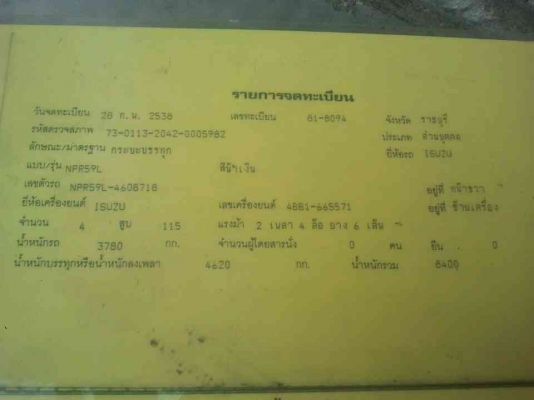 รายการจดทะเบียน
วันจดทะเบียน 28 ก.พ. 2538 เลขทะเบียน 81-8094 จังหวัด ราชบุรี
รหัสตรวจสภาพ 73-0113-2042-0005982 ประเภท ส่วนบุคคล
ลักษณะ/มาตรฐาน กระบะบรรทุก ยี่ห้อรถ ISUZU
แบบ/รุ่น NPR59L สี เงิน
เลขตัวรถ NPR59L-4608718 อยู่ที่ หน้าขวา
ยี่ห้อเครื่องยนต์ ISUZU เลขเครื่องยนต์ 4BB1-665571 อยู่ที่ ข้างเครื่อง
จำนวน 4 สูบ 115 แรงม้า 2 เพลา 4 ล้อ ยาง 6 เส้น
น้ำหนักรถ 3780 กก. จำนวนผู้โดยสารนั่ง 0 คน ยืน 0
น้ำหนักบรรทุกหรือน้ำหนักลงเพลา 4620 กก. น้ำหนักรวม 8400